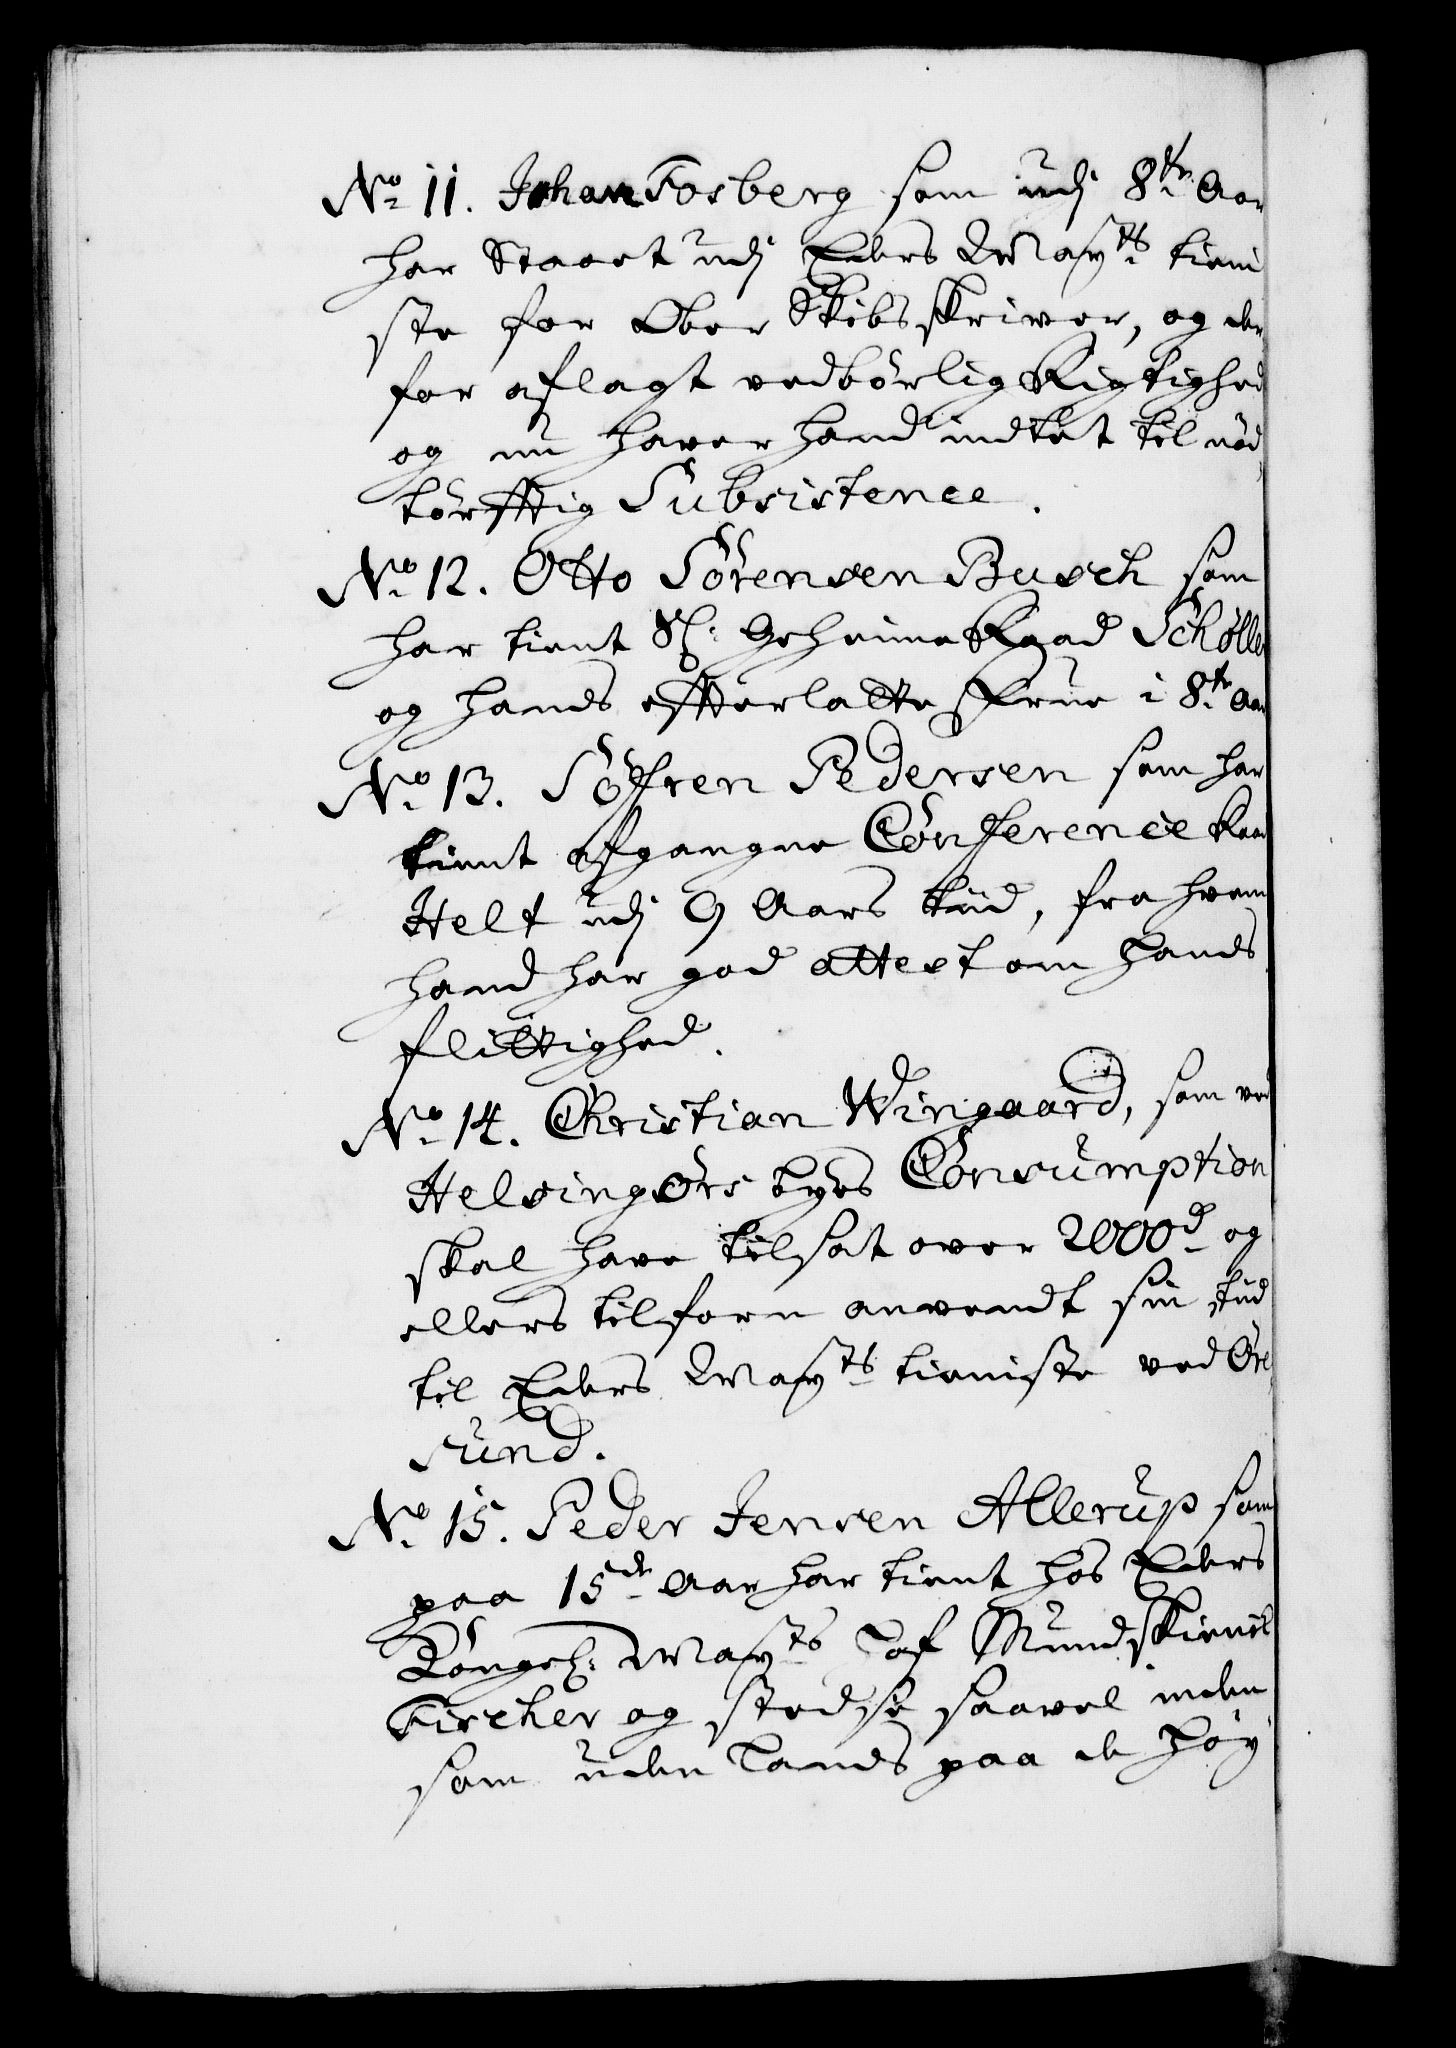 No 11. Johan Fosberg som udj 8te Aar
har Staaet udj Eders Mayts tieni
ste for Ober Skibsskriver, og der
for aflagt vedbörlig Rigtighed
og nu haver hand indtet til nöd
törfftig Subsistence.
No 12. Otto Sörensen Busch som
har tient Sl: Geheime Raad Schøller
og hands effterlatte Frue i 8te Aar
No 13. Söfren Pedersen som har
tient afgangne Conference Raad
Helt udj 9 Aars tiid, fra hvem
hand har god attest om hands
flittighed.
No 14. Christian Wingaard, som ved
Helsingørs byes Consumption
skal have tilsat over 2000d og
ellers tilforn anvendt sin tiid
til Eders Mayts tieniste ved Øre
sund.
No 15. Peder Jensen Allerup som
paa 15de Aar har tient hos Eders
Kongel: Mayts Hof Mundskienk
Fircher og stedse saavel inden
som uden Lands paa de høy